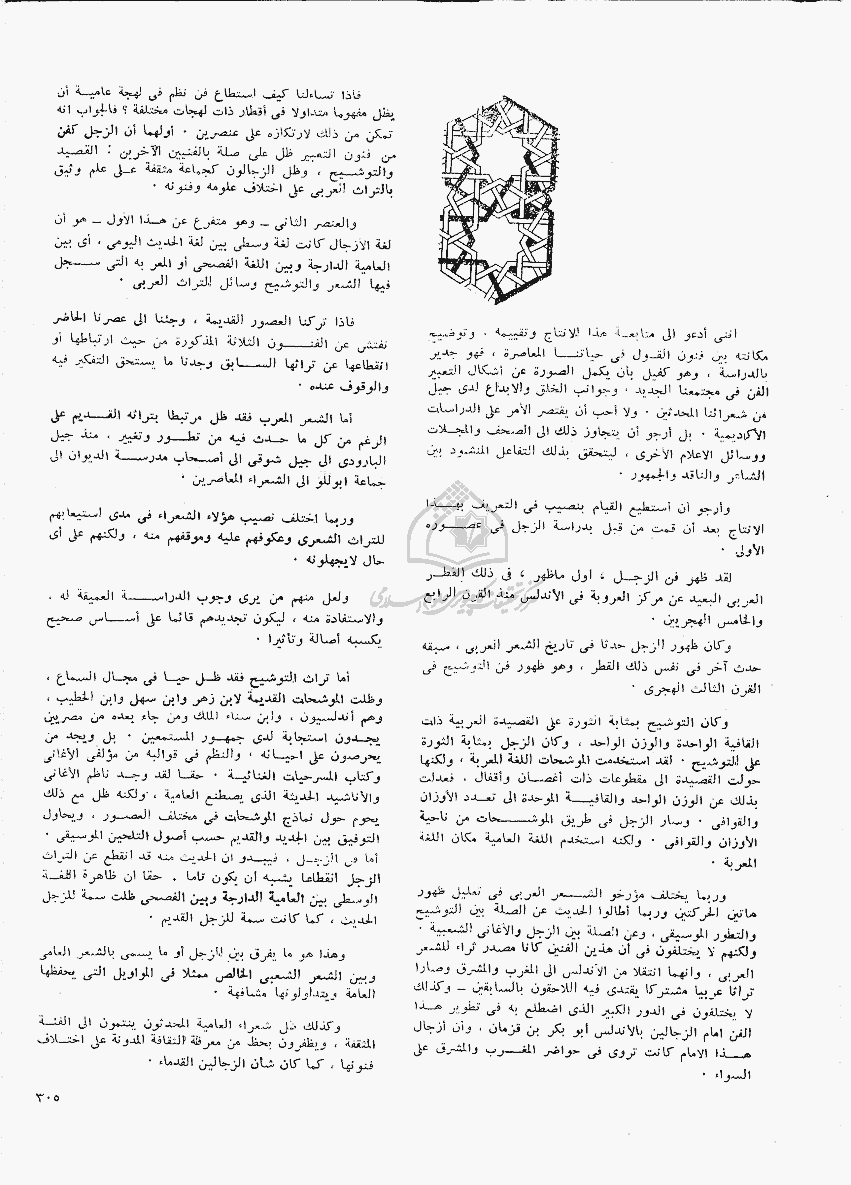 اننى أدعو الى متابعة هذا الانتاج وتقييمه ٠ وتوضيح
مكانته بين فنون القول فى حياتنا المعاصرة ، فهو جدير
بالدراسة ، وهو كفيل بأن يكمل الصورة عن أشكال التعبير
الفن فى مجتمعنا الجديد ، وجوانب الخلق والابداع لدى جيل
من شعرائنا المحدثين ٠ ولا أحب أن يقتصر الأمر على الدراسات
الأكاديمية ٠ بل أرجو أن يتجاوز ذلك الى الصحف والمجلات
ووسائل الاعلام الأخرى ، ليتحقق بذلك التفاعل المنشود بين
الشاعر والناقد والجمهور ٠
وأرجو أن أستطيع القيام بنصيب فى التعريف بهذا
الانتاج بعد أن قمت من قبل بدراسة الزجل فى عصوره
الأولى ٠
لقد ظهر فن الزجل ، اول ماظهر ، فى ذلك القطر
العربى البعيد عن مركز العروبة فى الأندلس منذ القرن الرابع
والخامس الهجريين ٠
وكان ظهور الزجل حدثا فى تاريخ الشعر العربى ، سبقه
حدث آخر فى نفس ذلك القطر ، وهو ظهور فن التوشيح فى
القرن الثالث الهجرى ٠
وكان التوشيح بمثابة الثورة على القصيدة العربية ذات
القافية الواحدة والوزن الواحد ، وكان الزجل بمثابة الثورة
على التوشيح ٠ لقد استخدمت الموشحات اللغة المعربة ، ولكنها
حولت القصيدة الى مقطوعات ذات أغصان وأقفال ، فعدلت
بذلك عن الوزن الواحد والقافية الموحدة الى تعدد الأوزان
والقوافى ٠ وسار الزجل فى طريق الموشحات من ناحية
الأوزان والقوافى ٠ ولكنه استخدم اللغة العامية مكان اللغة
المعربة ٠
وربما يختلف مؤرخو الشعر العربى فى تعليل ظهور
هاتين الحركتين وربما أطالوا الحديث عن الصلة بين التوشيح
والتطور الموسيقى ، وعن الصلة بين الزجل والأغانى الشعبية ٠
ولكنهم لا يختلفون فى أن هذين الفنين كانا مصدر ثراء للشعر
العربى ، وانهما انتقلا من الأندلس الى المغرب والمشرق وصارا
تراثا عربيا مشتركا يقتدى فيه اللاحقون بالسابقين – وكذلك
لا يختلفون فى الدور الكبير الذى اضطلع به فى تطوير هذا
الفن امام الزجالين بالاندلس أبو بكر بن قزمان ، وأن أزجال
هذا الامام كانت تروى فى حواضر المغرب والمشرق على
السواء ٠
فاذا تساءلنا كيف استطاع فن نظم فى لهجة عامية أن
يظل مفهوما متداولا فى أقطار ذات لهجات مختلفة ؟ فالجواب انه
تمكن من ذلك لارتكازه على عنصرين ٠ أولهما أن الزجل كفن
من فنون التعبير ظل على صلة بالفنيين الآخرين : القصيد
والتوشيح ، وظل الزجالون كجماعة مثقفة على علم وثيق
بالتراث العربى على اختلاف علومه وفنونه ٠
والعنصر الثانى – وهو متفرع عن هذا الأول – هو أن
لغة الأزجال كانت لغة وسطى بين لغة الحديث اليومى ، أى بين
العامية الدارجة وبين اللغة الفصحى أو المعربه التى سجل
فيها الشعر والتوشيح وسائل للتراث العربى ٠
فاذا تركنا العصور القديمة ، وجئنا الى عصرنا الحاضر
نفتش عن الفنون الثلاثة المذكورة من حيث ارتباطها أو
انقطاعها عن تراثها السابق وجدنا ما يستحق التفكير فيه
والوقوف عنده ٠
أما الشعر المعرب فقد ظل مرتبطا بتراثه القديم على
الرغم من كل ما حدث فيه من تطور وتغيير ، منذ جيل
البارودى الى جيل شوقى الى أصحاب مدرسة الديوان الى
جماعة ابوللو الى الشعراء المعاصرين ٠
وربما اختلف نصيب هؤلاء الشعراء فى مدى استيعابهم
للتراث الشعرى وعكوفهم عليه وموقفهم منه ، ولكنهم على أى
حال لايجهلونه ٠
ولعل منهم من يرى وجوب الدراسة العميقة له ،
والاستفادة منه ، ليكون تجديدهم قائما على أساس صحيح
يكسبه أصالة وتأثيرا ٠
أما تراث التوشيح فقد ظل حيا فى مجال السماع ،
وظلت الموشحات القديمة لابن زهر وابن سهل وابن الخطيب ،
وهم أندلسيون ، وابن سناء الملك ومن جاء بعده من مصريين
يجدون استجابة لدى جمهور المستمعين ٠ بل ويجد من
يحرصون على احيائه ، والنظم فى قوالبه من مؤلفى الأغانى
وكتاب المسرحيات الغنائية ٠ حقا لقد وجد ناظم الأغانى
والأناشيد الحديثة الذى يصطنع العامية ، ولكنه ظل مع ذلك
يحوم حول نماذج الموشحات فى مختلف العصور ، ويحاول
التوفيق بين الجديد والقديم حسب أصول التلحين الموسيقى ٠
أما فن الزجل ، فيبدو ان الحديث منه قد انقطع عن التراث
الزجل انقطاعا يشبه أن يكون تاما ٠ حقا ان ظاهرة اللغة
الوسطى بين العامية الدارجة وبين الفصحى ظلت سمة للزجل
الحديث ، كما كانت سمة للزجل القديم ٠
وهذا هو ما يفرق بين الزجل أو ما يسمى بالشعر العامى
وبين الشعر الشعبى الخالص ممثلا فى المواويل التى يحفظها
العامة ويتداولونها مشافهة ٠
وكذلك ظل شعراء العامية المحدثون ينتمون الى الفئة
المثقفة ، ويظفرون بحظ من معرفة الثقافة المدونة على اختلاف
فنونها ، كما كان شأن الزجالين القدماء ٠
٣٠٥